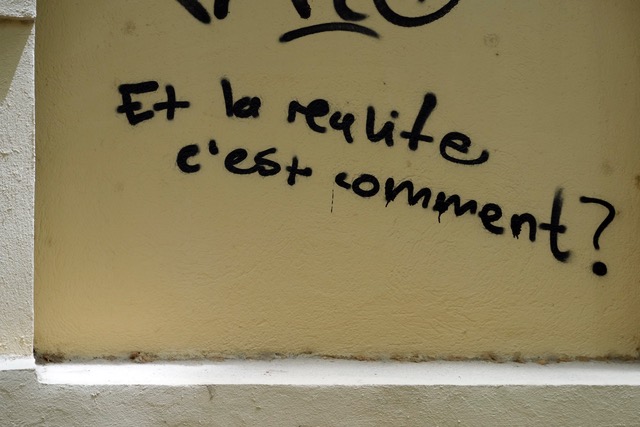 Et la realite
c'est comment?